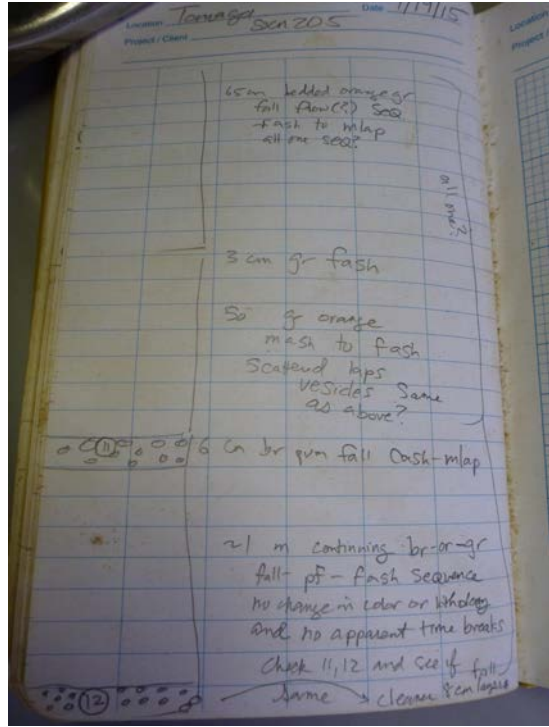 Location Tanaga Date 1/19/15
Project / Client Sxn 205
65 cm bedded orange gr
fall flow(?) seq
fash to mlap
all one seq?
all one?
3 cm gr fash
50 gr orange
mash to fash
Scattered laps
vesicles Same
as above?
11 6 cm br pum fall Cash-mlap
~1 m continuing br-or-gr
fall-pf-fash Sequence
no change in color or lithology
and no apparent time breaks
Check 11, 12 and see if fall
12 Same cleaner 8 cm